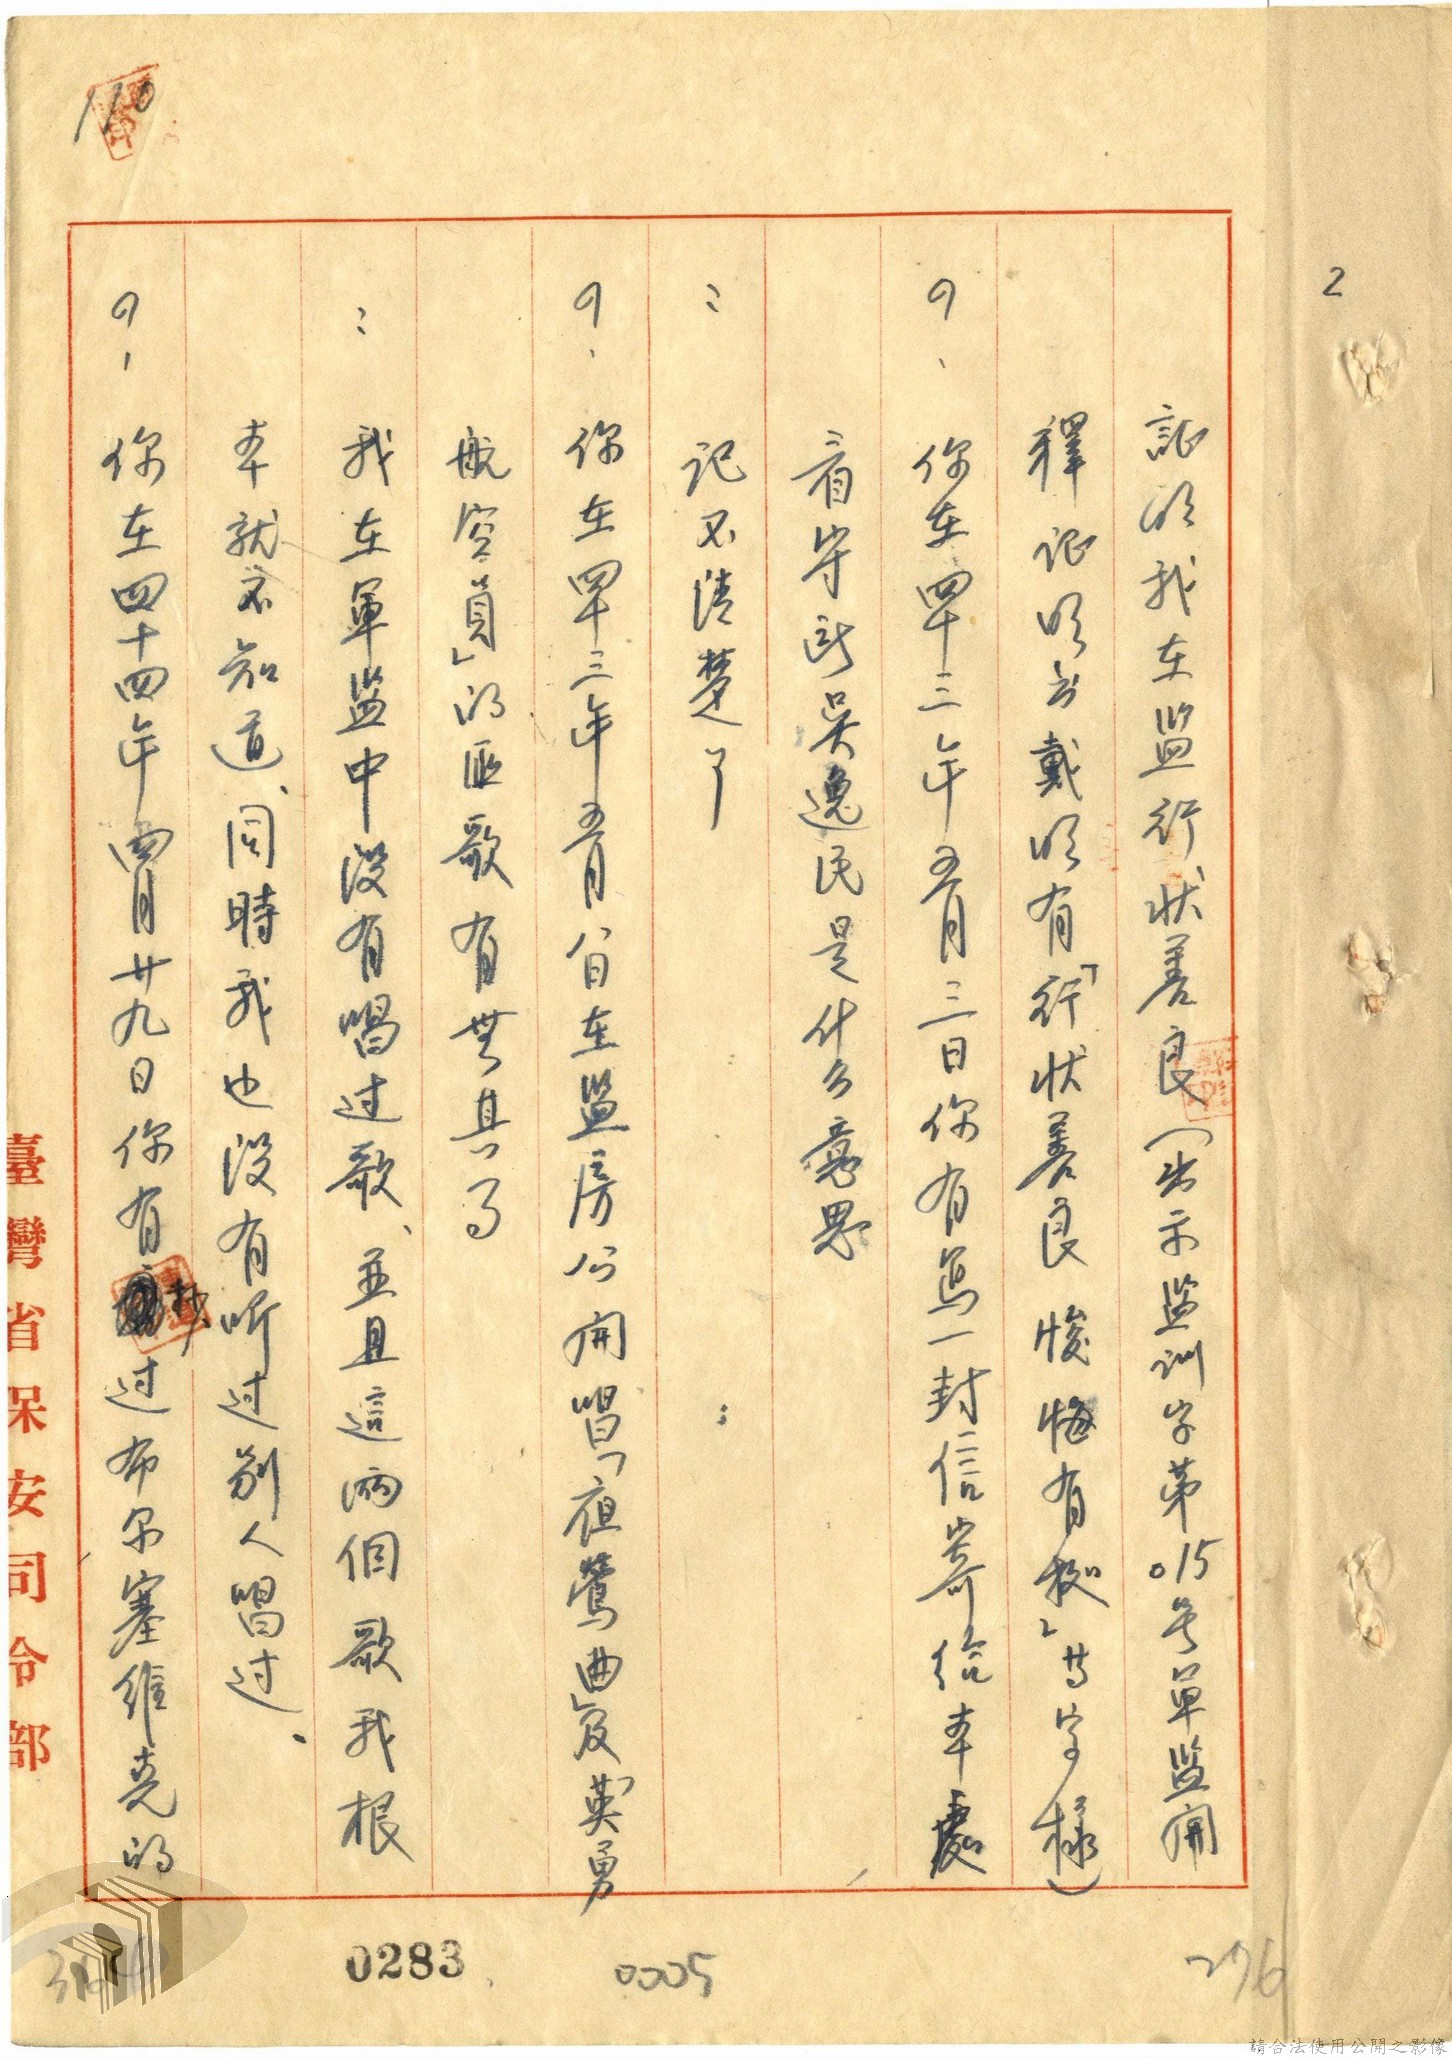 110
2
証明我在監行狀善良(出示监訓字第015号单监開
釋証明書載明有「行狀善良 悛悔有据」等字樣)
問、你在四十三年五月三日你有寫一封信寄給本處
看守所吴逸民是什么意思
:記不清楚了
問、你在四十三年五月份在监房公開唱「夜鶯曲」及「英勇
航空員」的匪歌有無其事
:我在軍监中没有唱过歌、並且這兩個歌我根
本就不知道、同時我也没有听过别人唱过、
問、你在四十四年四月廿九日你有抄过布尔塞維克的
臺灣省保安司令部
0283
0005
276
請合法使用公開之影像